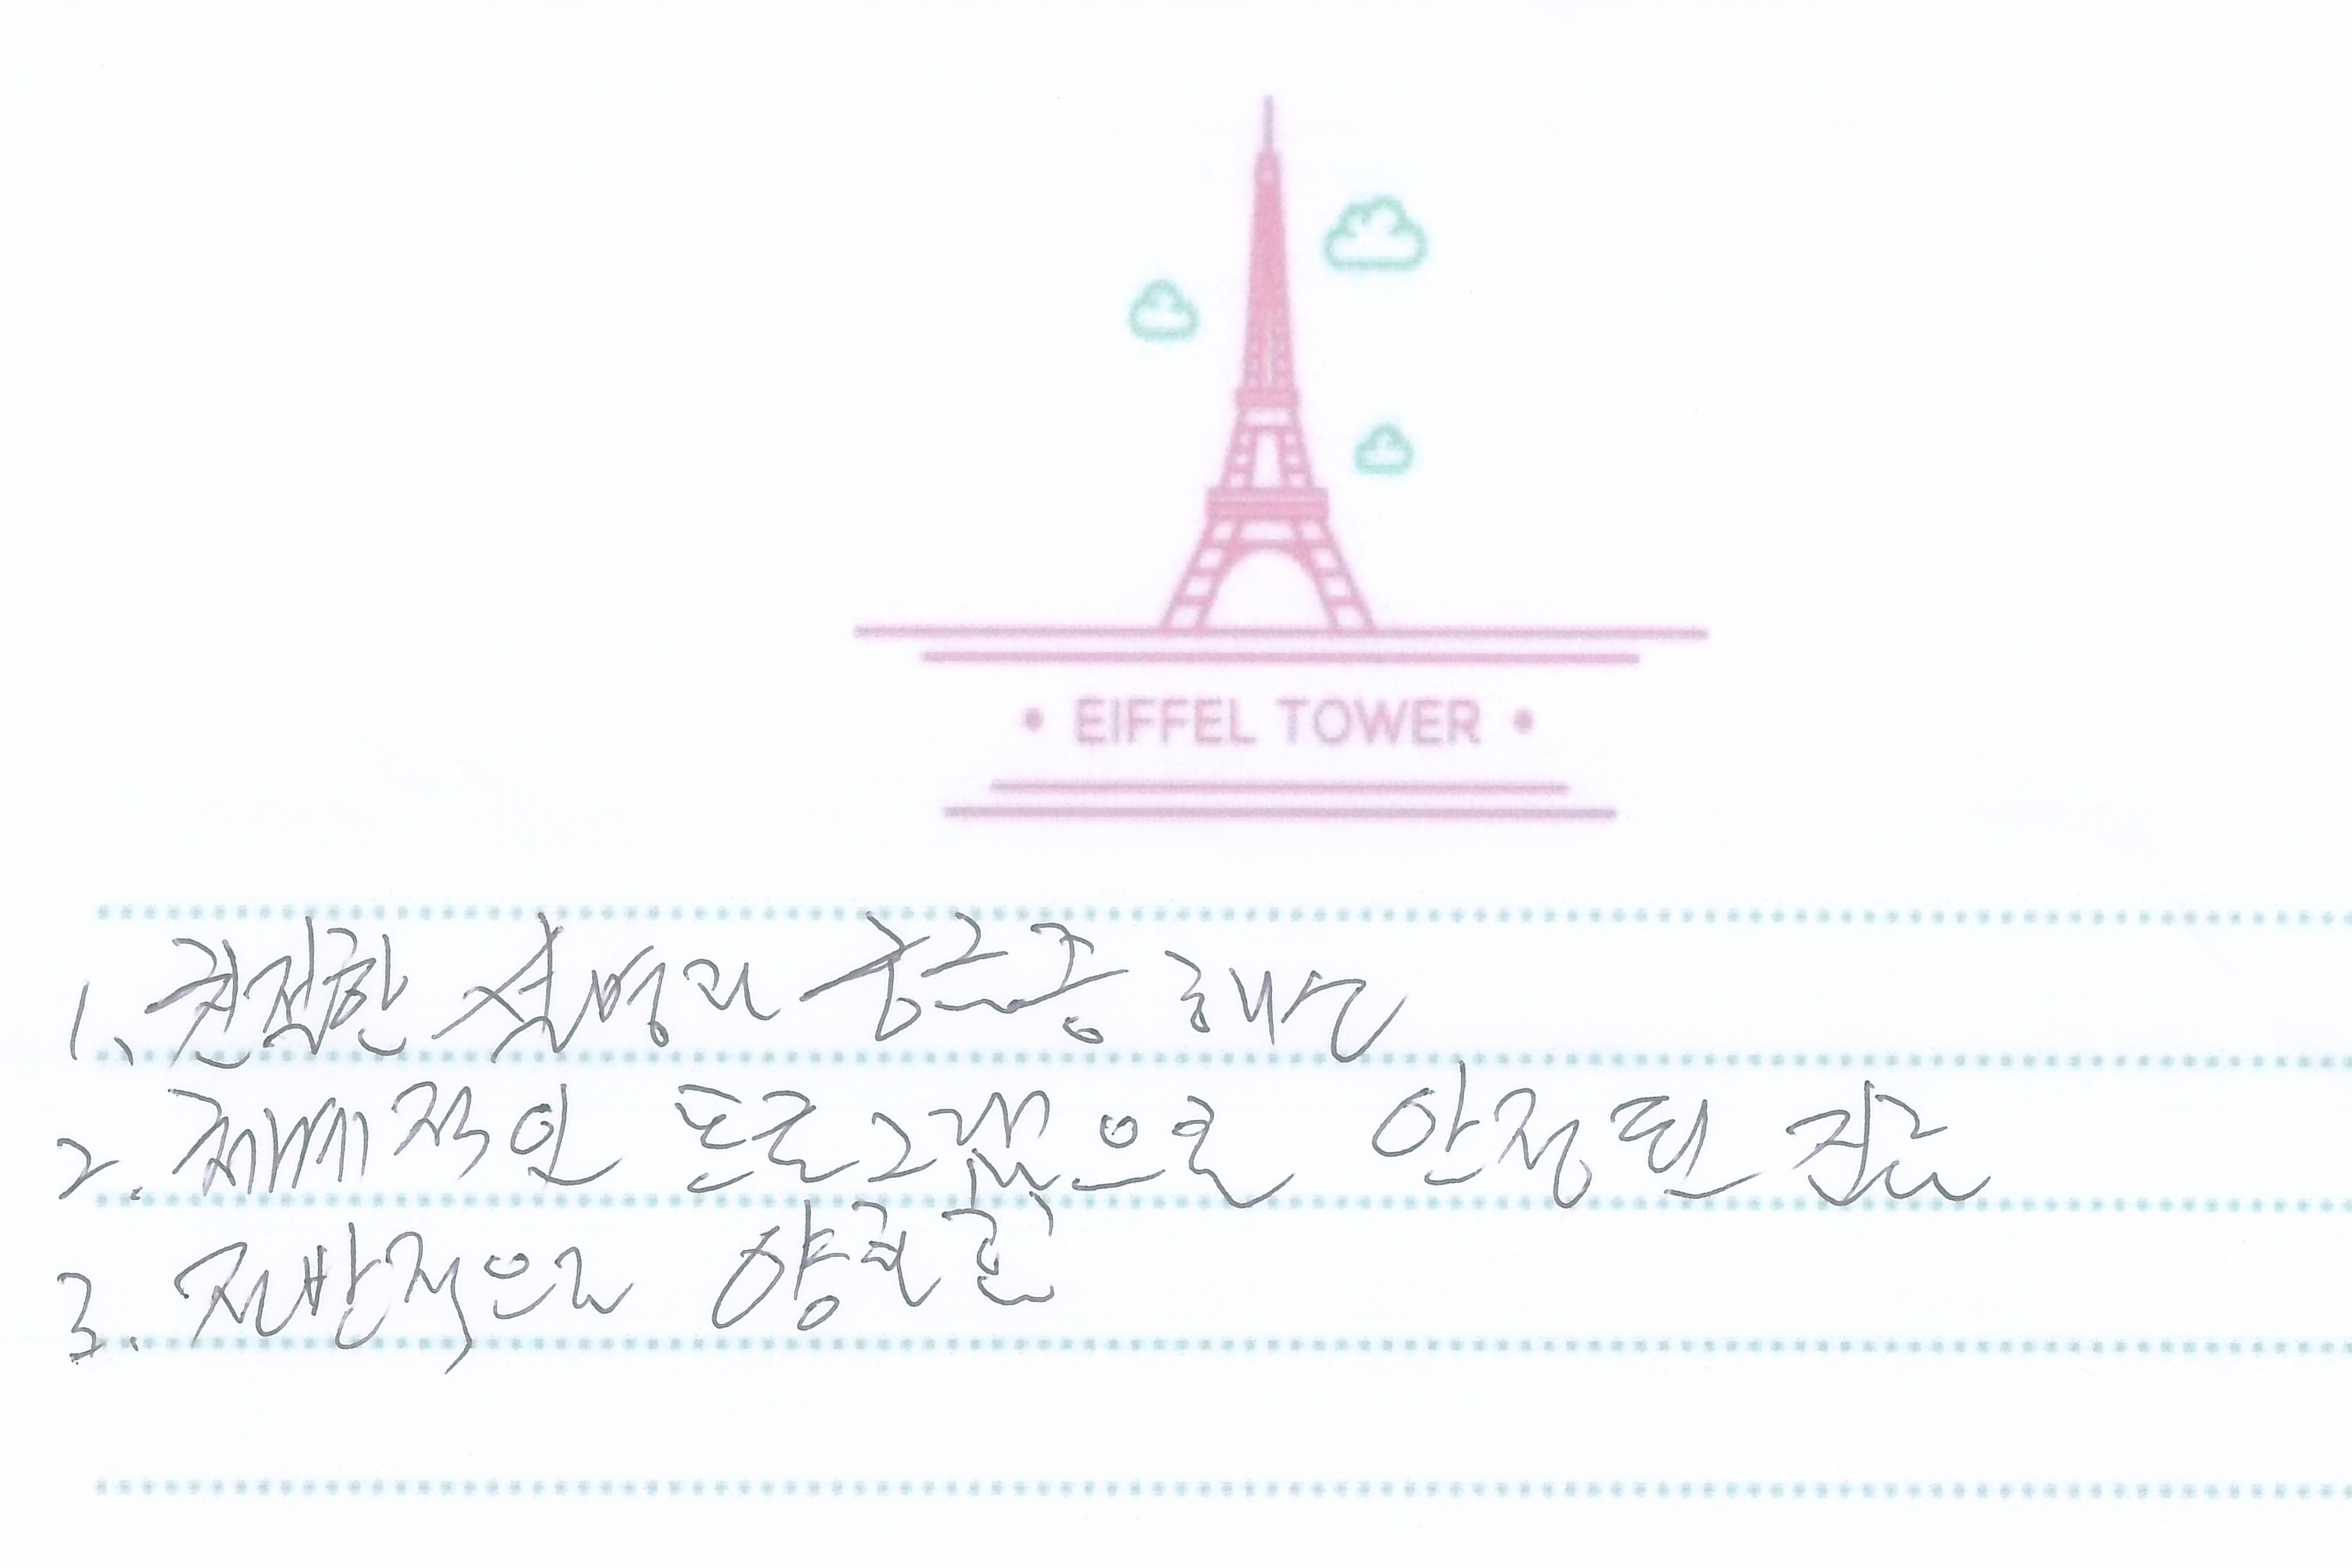 EIFFEL TOWER
1. 친절한 설명과 궁금증 해소
2. 체계적인 프로그램으로 안정된 진료
3. 전반적으로 양호함